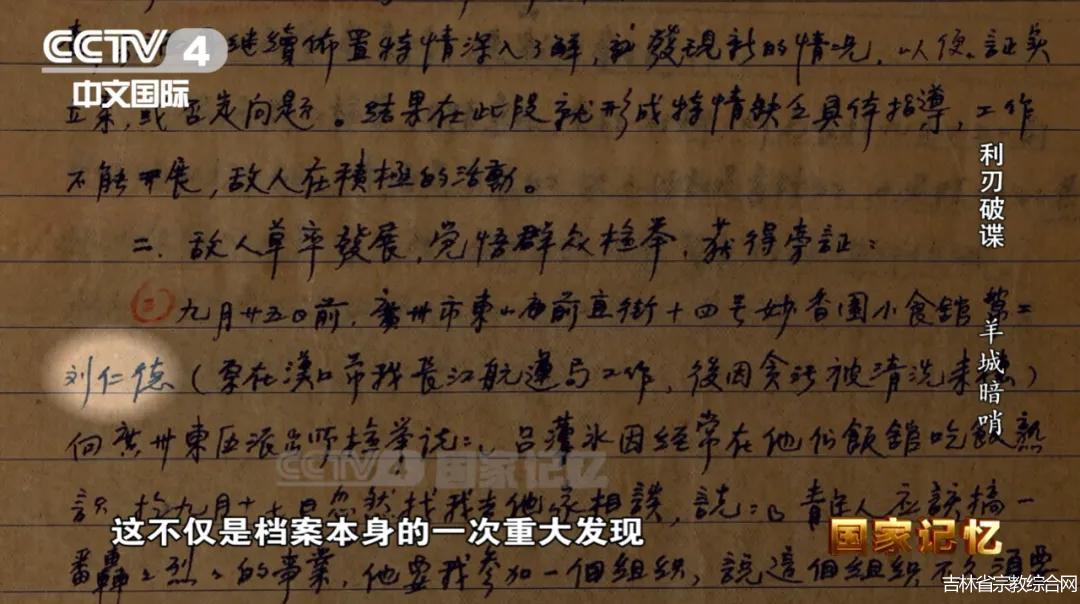 CCTV 4
中文国际
继續佈置特情深入了解,到發現新的情况,以便證实
立案,或否定问题。结果在此段就形成特情缺乏具体指導,工作
不能开展,敌人在積極的活動。
二、敌人草率發展,觉悟群众檢举,获得旁証:
九月廿五日前,廣州市東山庙前直街十四号妙香園小食館
刘仁德(原在漢口市我長江航運局工作,後因贪污被清洗来穗)
向廣州東区派出所檢举说:吕薄冰因經常在他们飯館吃飯熟
识,於九月十七日忽然找我去他家相談,說:青年人应該搞一
番轟々烈々的事業,他要我參加一個組織,說這個組織不久須要
利刃破谍
羊城暗哨
CCTV 国家记忆
这不仅是档案本身的一次重大发现
国家记忆
吉林省宗教综合网